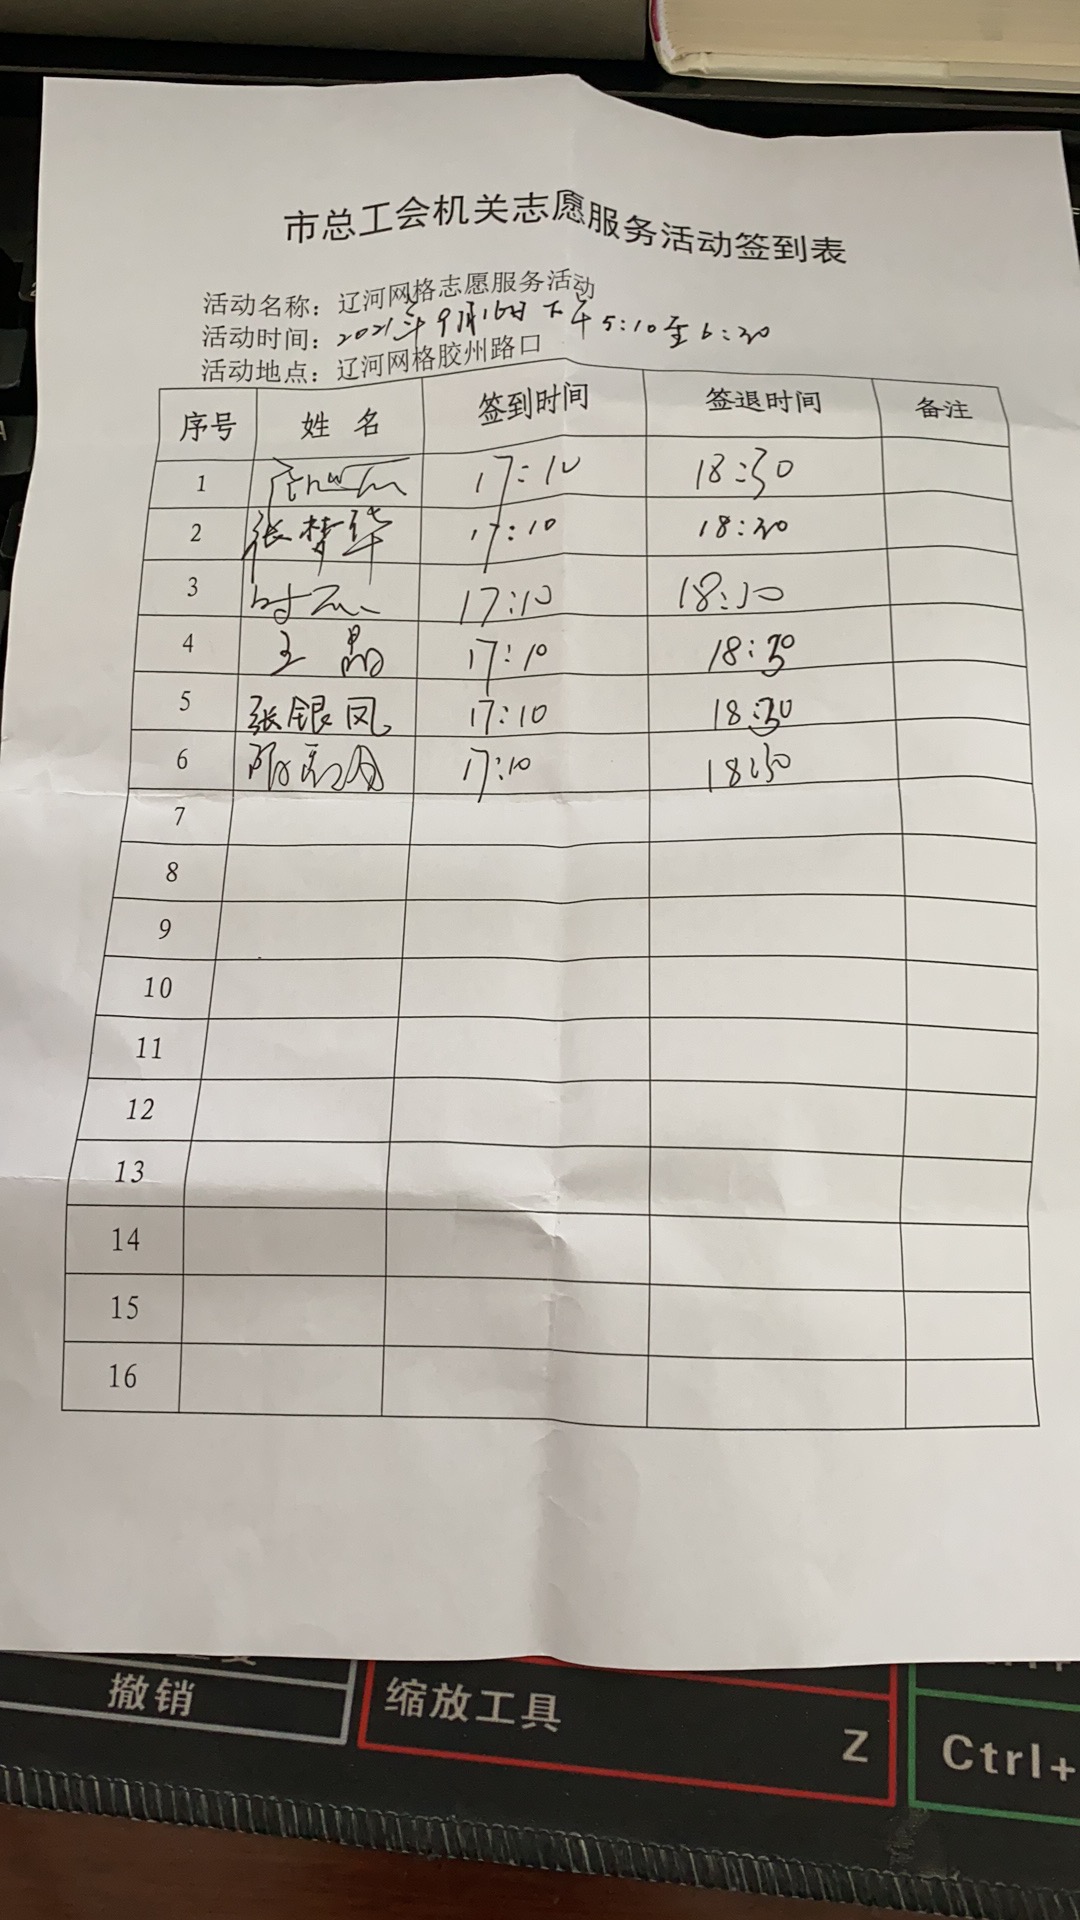 市总工会机关志愿服务活动签到表
活动名称：辽河网格志愿服务活动
活动时间：2021年9月16日下午5:10至6:30
活动地点：辽河网格胶州路口
序号 姓名 签到时间 签退时间 备注
1 17:10 18:30
2 张梦华 17:10 18:30
3 17:10 18:30
4 王晶 17:10 18:30
5 张银凤 17:10 18:30
6 17:10 18:30
7
8
9
10
11
12
13
14
15
16
撤销
缩放工具
Z
Ctrl+